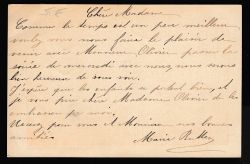 Cher Madame
Comme le temps est un peu meilleur
voulez vous nous faire le plaisir de
venir avec Monsieur Olivier passer la
soirée de mercredi avec nous, nous serons
bien heureux de vous voir.
J'espère que les enfants se portent bien, et
je vous prie cher Madame Olivier de les
embrasser pr moi.
Recevez, pour vous et Monsieur nos bonnes
amitiés
Marie